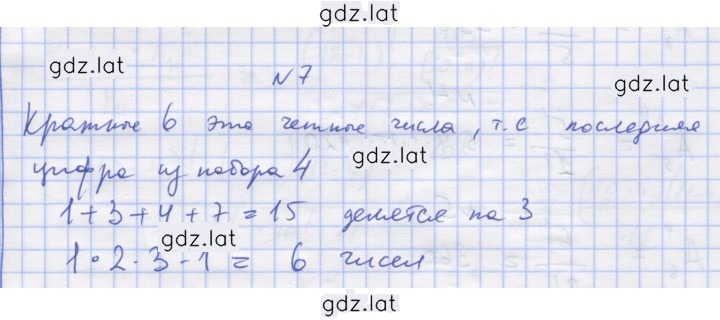 gdz.lat
gdz.lat
№7
gdz.lat
Кратные 6 это четные числа, т.е последняя
gdz.lat
цифра из набора 4
1+3+4+7=15 делятся на 3
gdz.lat
1·2·3·1= 6 чисел
gdz.lat